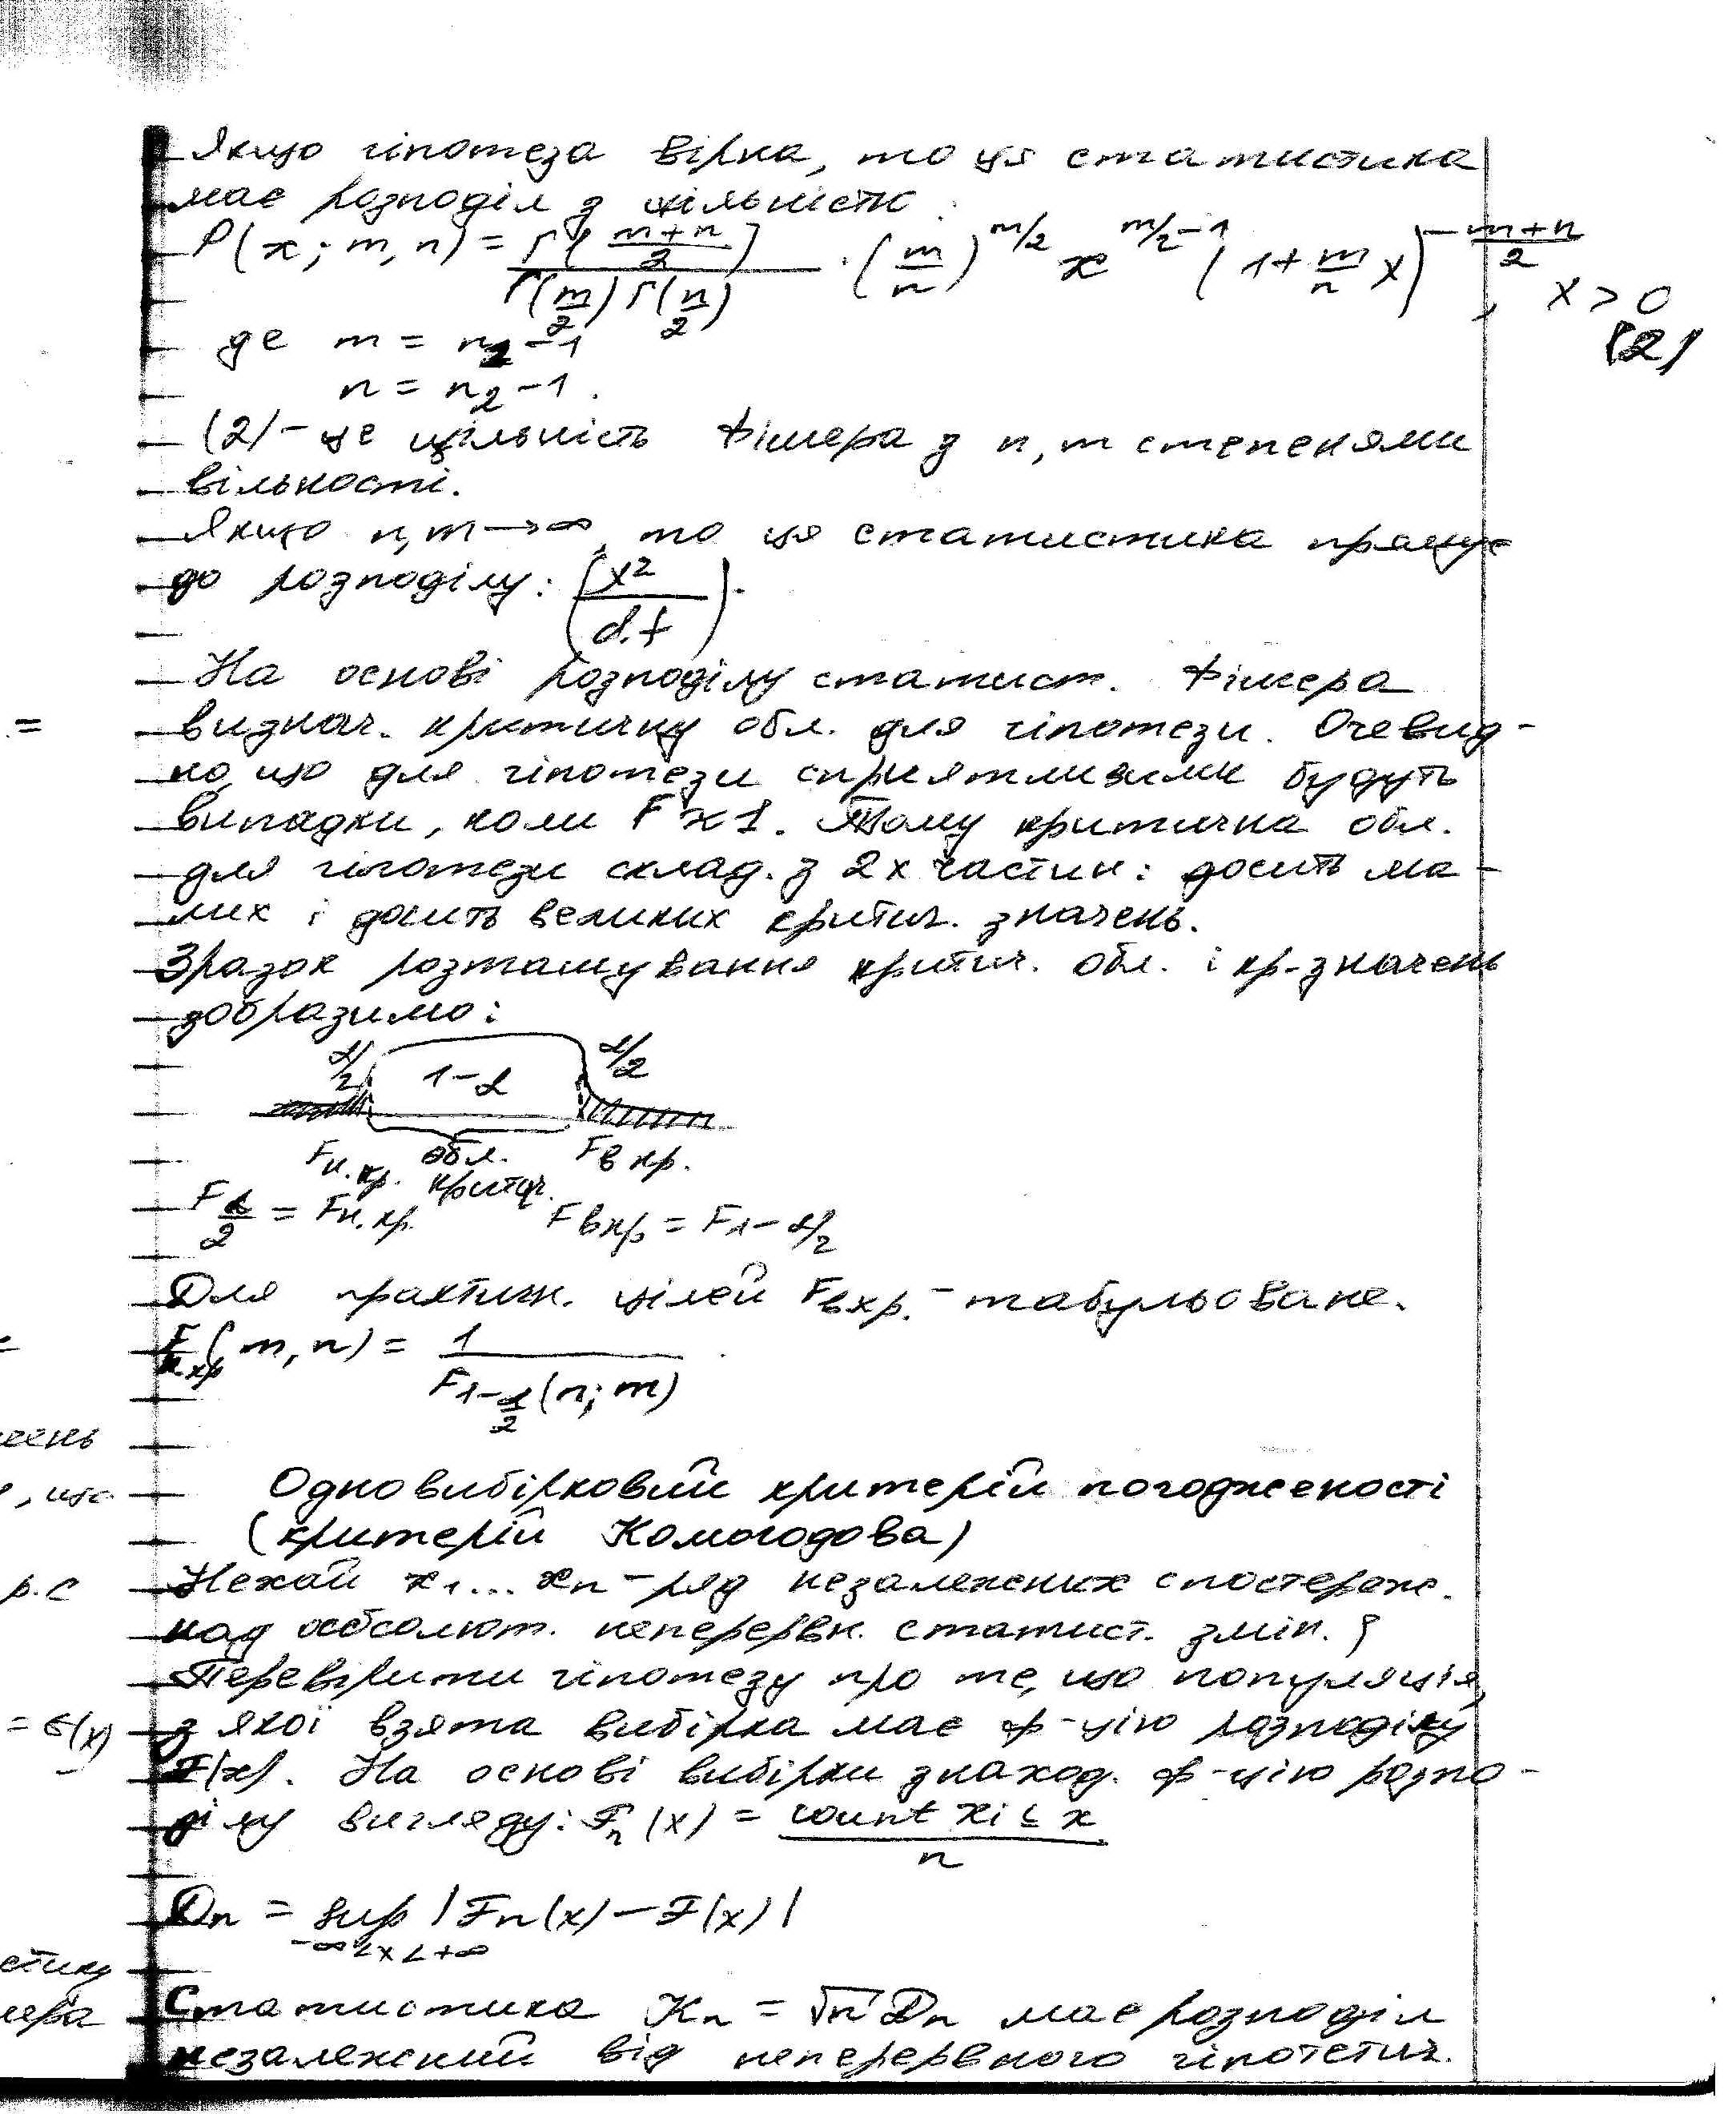 Якщо гіпотеза вірна, то ця статистика
має розподіл з щільністю:
P(x; m, n) = Γ((m+n)/2) / (Γ(m/2) Γ(n/2)) · (m/n)^(m/2) x^(m/2-1) (1 + m/n x)^(-(m+n)/2), x > 0
(2)
де m = n₁ - 1
n = n₂ - 1.
(2) - це щільність Фішера з n, m степенями
вільності.
Якщо n, m → ∞, то ця статистика прямує
до розподілу: (χ²/d.f).
На основі розподілу статист. Фішера
визнач. критичну обл. для гіпотези. Очевид-
но, що для гіпотези сприятливими будуть
випадки, коли F ≈ 1. Тому критична обл.
для гіпотези склад. з 2х частин: досить ма-
лих і досить великих критич. значень.
Зразок розташування критич. обл. і кр-значень
зобразимо:
α/2 1-α α/2
Fн.кр. обл. Fв кр.
критич.
F α/2 = Fн.кр. Fвкр = F1-α/2
Для практичн. цілей Fвкр. - табульоване.
Fн.кр(m, n) = 1 / F1-α/2(n; m)
Одновибірковий критерій погодженості
(критерій Комогодова)
Нехай x₁... xn - ряд незалежних спостереж.
над абсолют. неперервн. статист. змін. ξ
Перевірити гіпотезу про те, що популяція,
з якої взята вибірка має ф-цію розподілу
F(x). На основі вибірки знаход. ф-цію розпо-
ділу вигляду: Fn(x) = count xi ≤ x / n
Dn = sup |Fn(x) - F(x)|
-∞<x<+∞
Статистика Kn = √n Dn має розподіл
незалежний від неперервного гіпотетич.